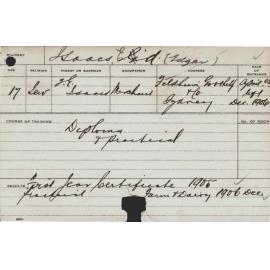 Isaacs, E (Edgar)
AGE RELIGION PARENT OR GUARDIAN OCCUPATION ADDRESS DATE OF ENTRANCE
17 Jew J. E. Isaacs Merchant April
Dec. 1906
COURSE OF TRAINING NO. OF ROOM
Diploma
& Practical
RESULTS First Year Certificate 1905
Practical Farm & Dairy 1906 Dec.